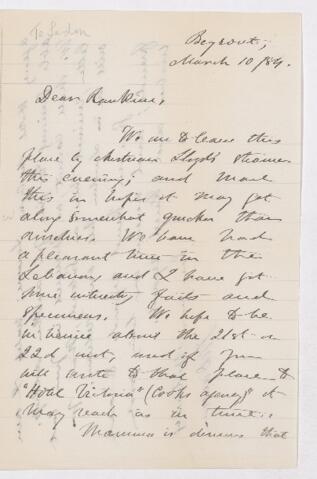 Beyrout,
March 10/84.
Dear Rankine,
We are to leave this
place by Austrian Lloyds steamer
this evening; and mail
this in hopes it may get
along somewhat quicker than
ourselves. We have had
a pleasant time in the
Lebanons and I have got
some interesting facts and
specimens. We hope to be
in Venice about the 21st or
22d inst, and if you
will write to that place to
"Hotel Victoria" (Cooks agency) it
may reach us in time.
Mamma is desirous that